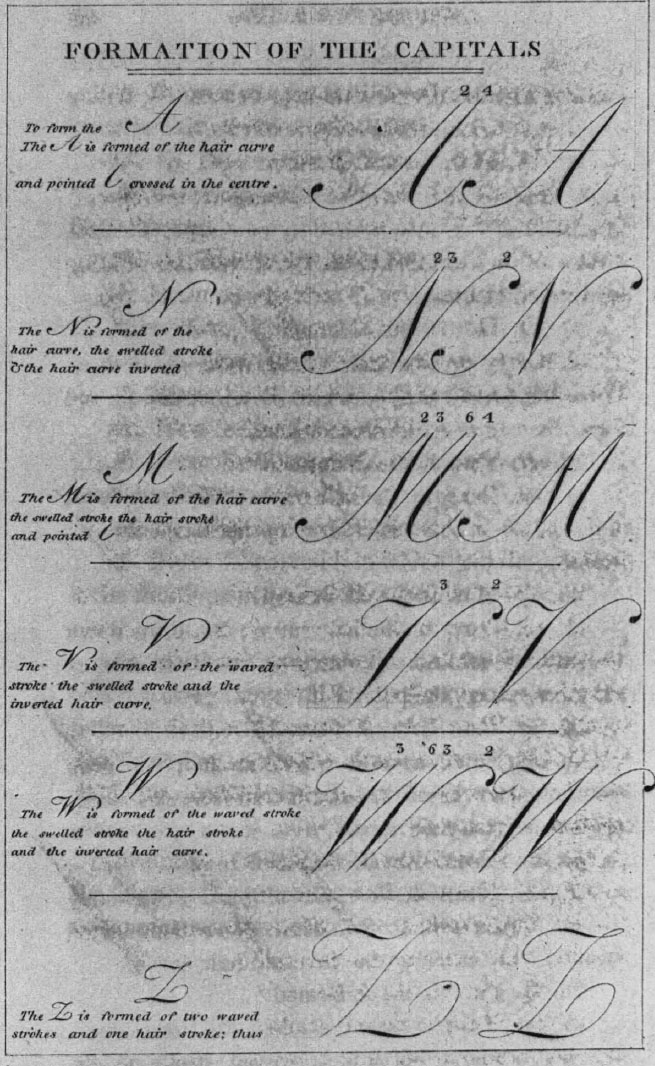 FORMATION OF THE CAPITALS
2 4
To form the A
The A is formed of the hair curve
and pointed l crossed in the centre.
A A
2 3 2
N
The N is formed of the
hair curve, the swelled stroke
& the hair curve inverted
N N
2 3 6 4
M
The M is formed of the hair curve
the swelled stroke the hair stroke
and pointed l
M M
3 2
V
The V is formed of the waved
stroke the swelled stroke and the
inverted hair curve.
V V
3 6 3 2
W
The W is formed of the waved stroke
the swelled stroke the hair stroke
and the inverted hair curve.
W W
Z
The Z is formed of two waved
strokes and one hair stroke; thus
Z Z